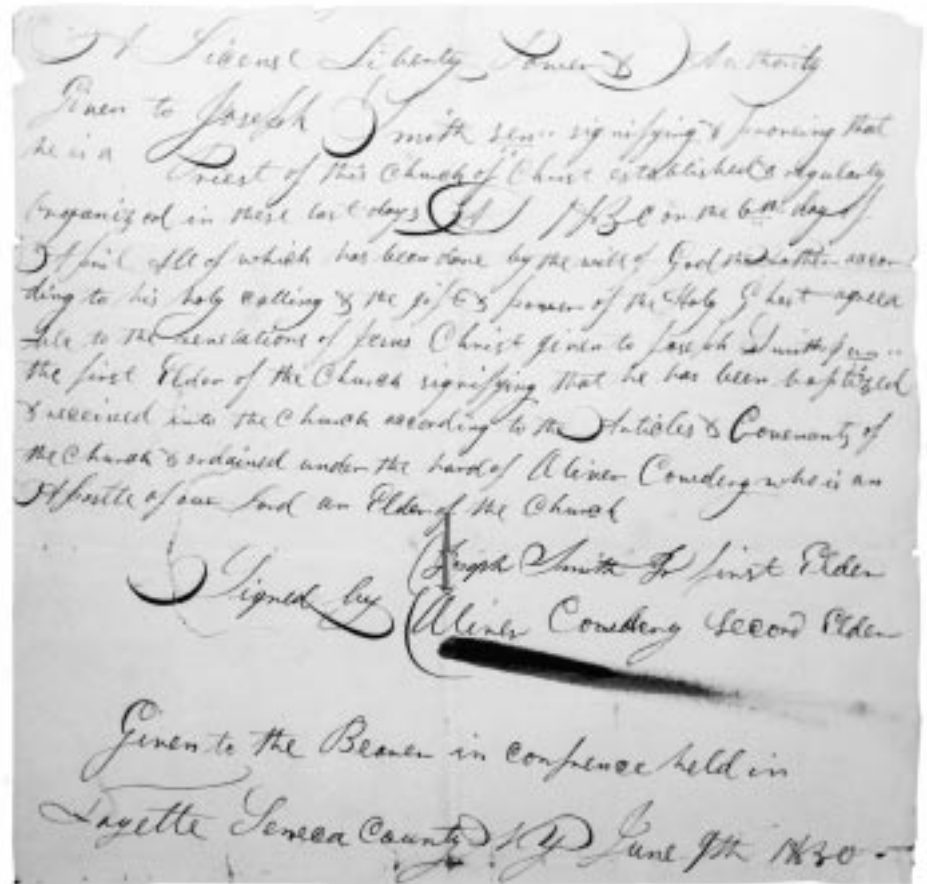 A License Liberty Power & Authority
Given to Joseph Smith senr signifying & proveing that
he is a Priest of this Church of Christ established & regularly
Organized in these last days AD 1830 on the 6th day of
April All of which has been done by the will of God the Father accor
ding to his holy calling & the gift & power of the Holy Ghost agreea
ble to the Revelations of Jesus Christ given to Joseph Smith junr
the first Elder of the Church signifying that he has been baptized
& received into the Church according to the Articles & Covenants of
the Church & ordained under the hand of Oliver Cowdery who is an
Apostle of our Lord an Elder of the Church
Joseph Smith Jr first Elder
Signed by
Oliver Cowdery Second Elder
Given to the Bearer in confrence held in
Fayette Seneca County NY June 9th 1830